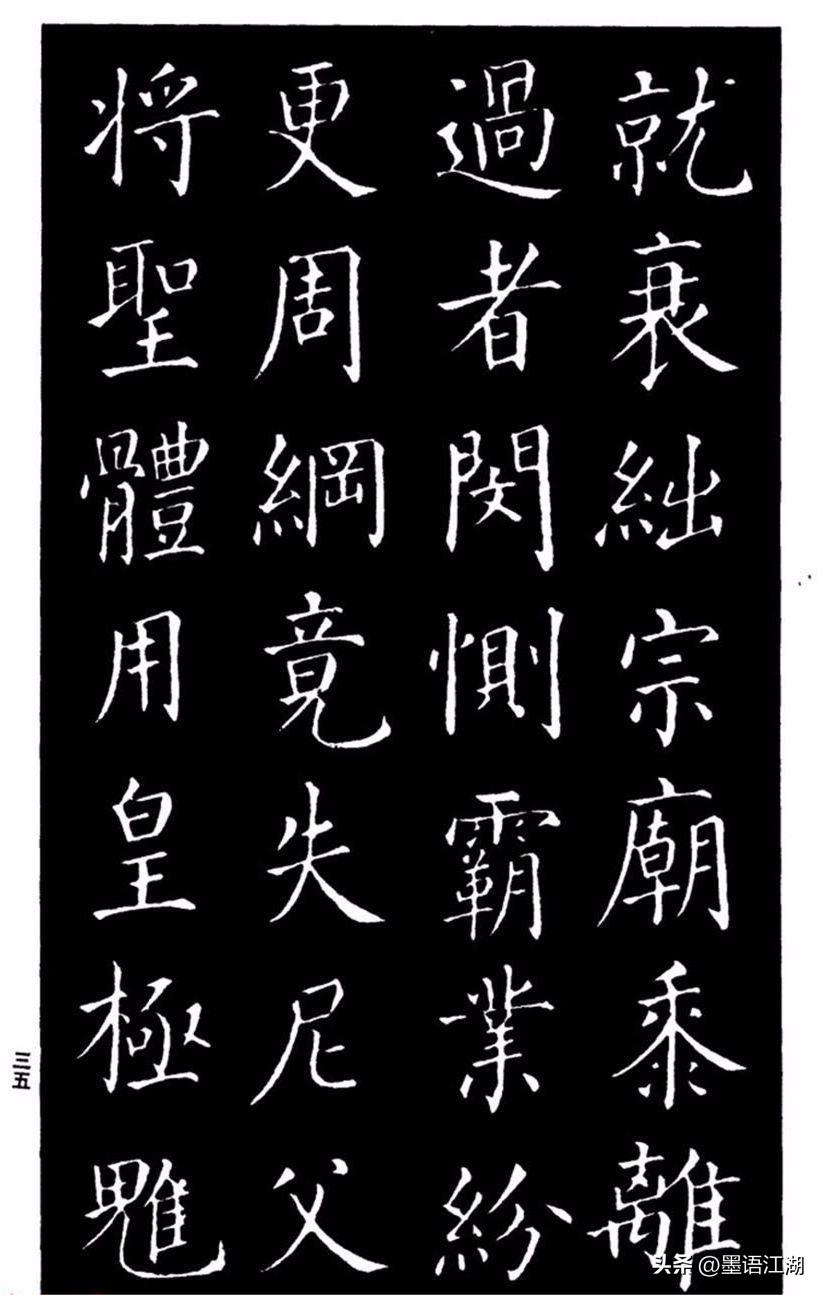 就衰絀宗廟黍離
過者閔惻霸業紛
更周綱竟失尼父
将聖體用皇極魋
三五
头条 @墨语江湖